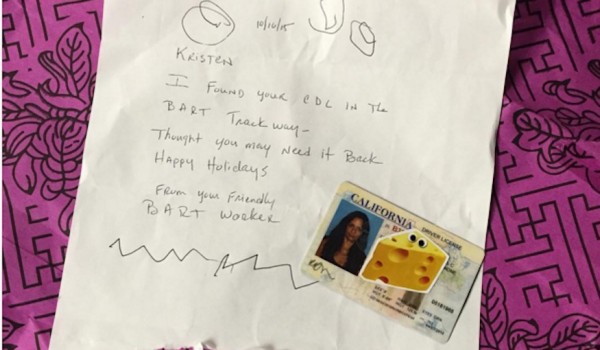 10/10/15
KRISTEN
I FOUND YOUR CDL IN THE
BART TRACKWAY-
THOUGHT YOU MAY NEED IT BACK
HAPPY HOLIDAYS
FROM YOUR FRIENDLY
BART WORKER
CALIFORNIA
DRIVER LICENSE